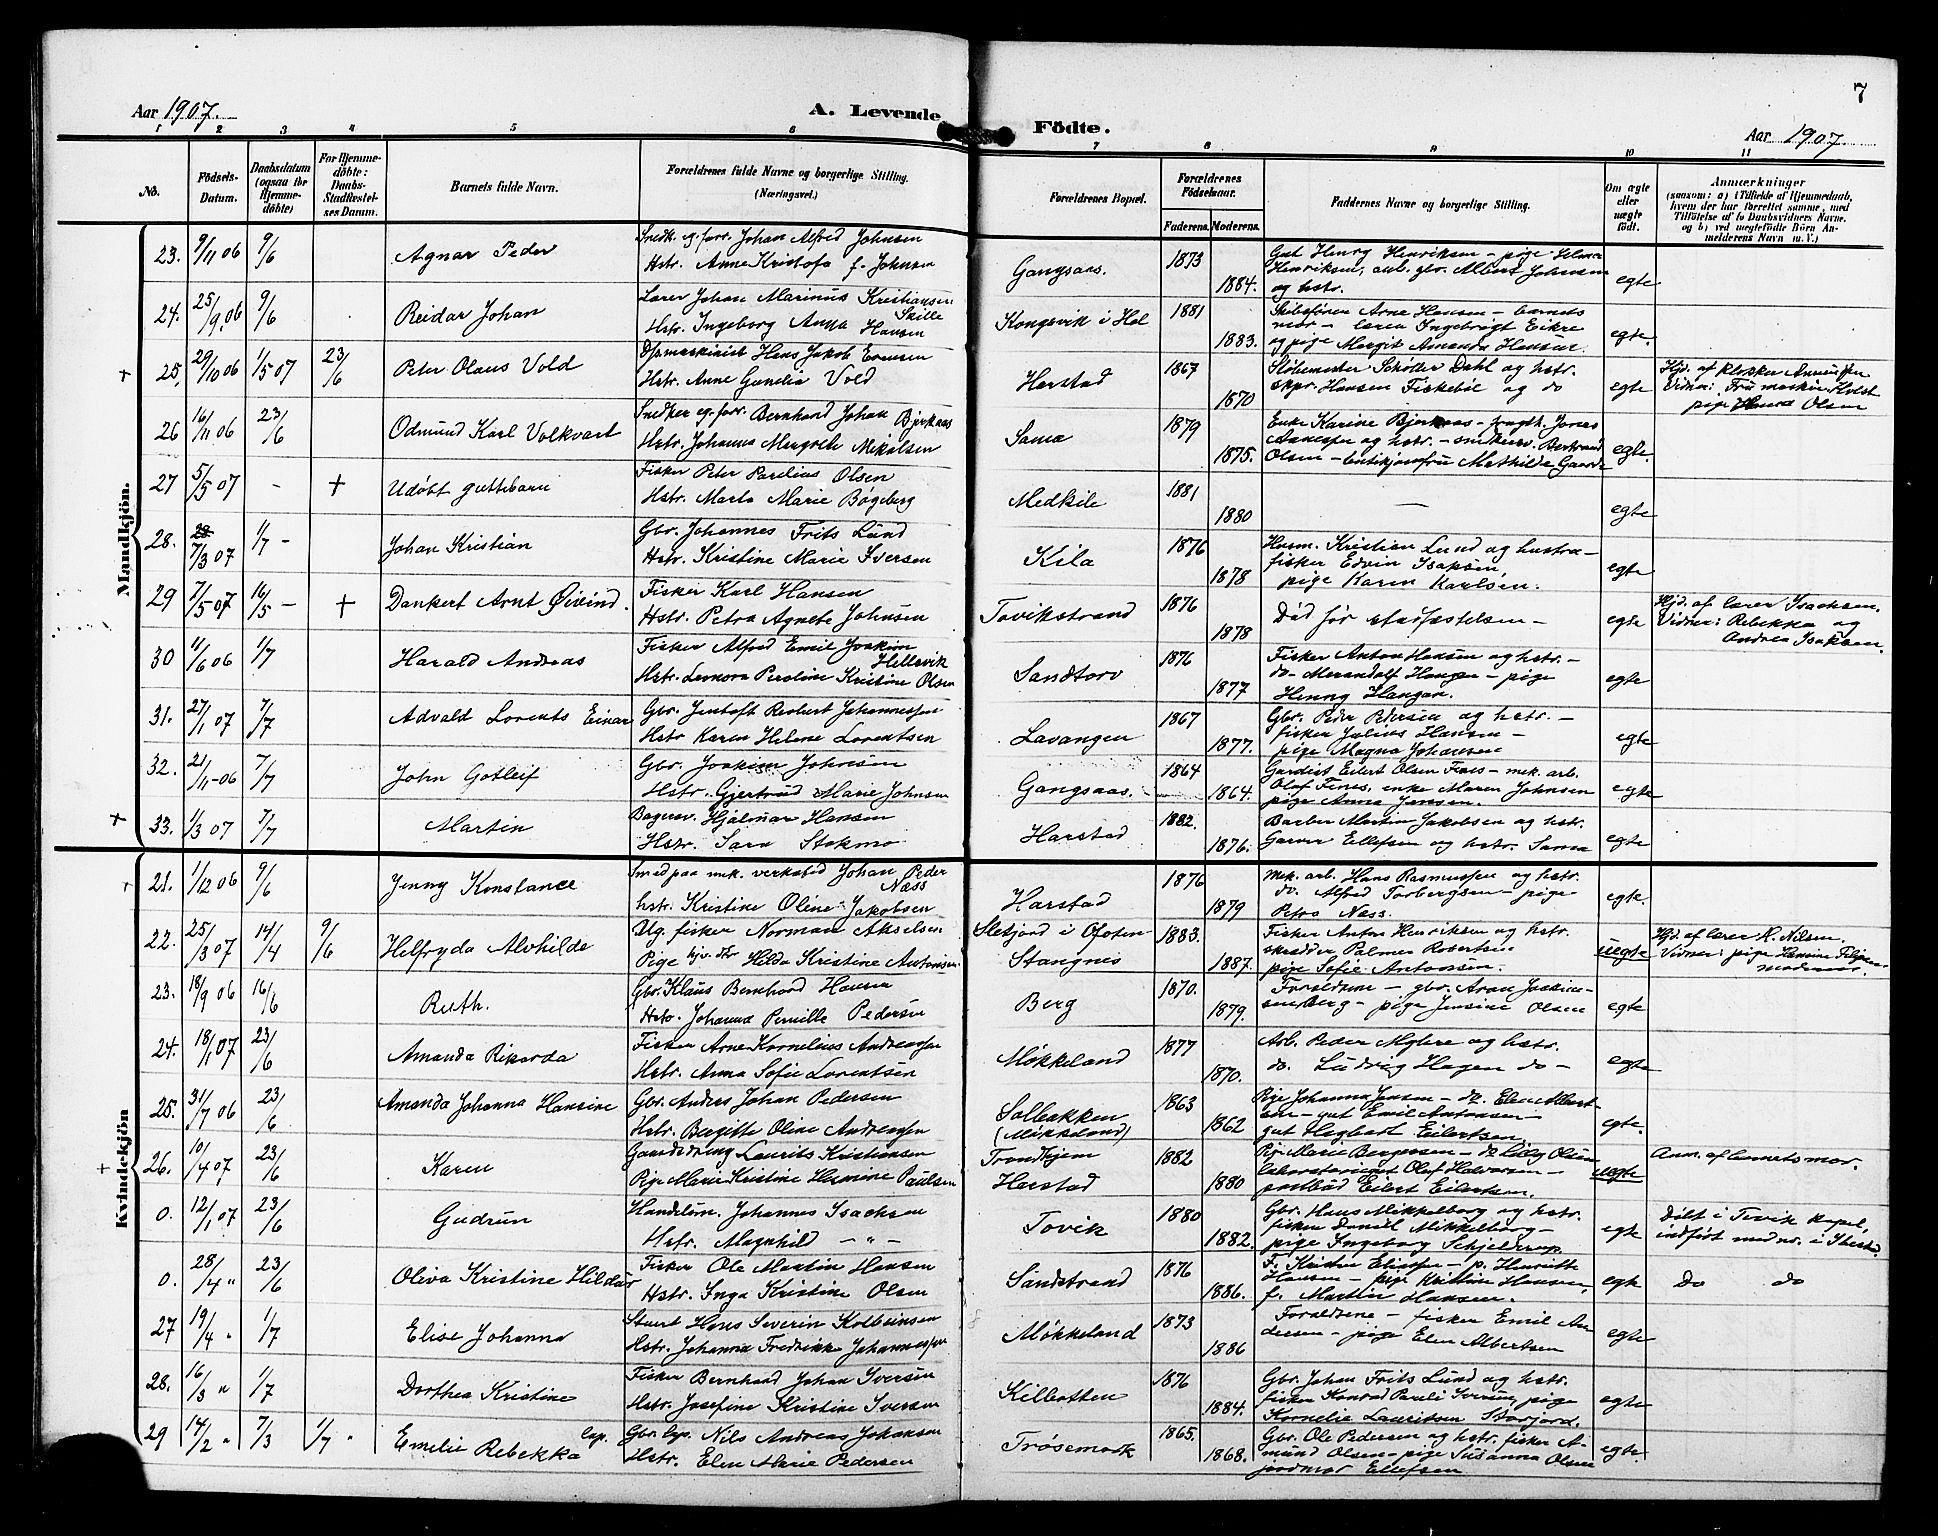 Aar 1907.
A. Levende
Födte.
7
Aar 1907.
1 2 3 4 5 6 7 8 9 10 11
No.
Födsels-
Datum.
Daabsdatum
(ogsaa for
Hjemme-
döbte)
For Hjemme-
döbte:
Daabs-
Stadfæstel-
ses Datum.
Barnets fulde Navn.
Forældrenes fulde Navne og borgerlige Stilling.
(Næringsvei.)
Forældrenes Bopæl.
Forældrenes
Födselsaar.
Faderens.
Moderens.
Faddernes Navne og borgerlige Stilling.
Om ægte
eller
uægte
födt.
Anmærkninger
(saasom: a) i Tilfælde af Hjemmedaab,
hvem der har forrettet samme, med
Tilföielse af to Daabsvidners Navne.
og b) ved uægtefödte Börn An-
melderens Navn m. V.)
Mandkjön.
23. 9/11 06 9/6 Agnar Peder
Snedk. og forr. Johan Alfred Johnsen
Hstr. Anne Kristofa f. Johnsen
Gangsaas. 1873 1884.
Gut Henry Henriksen – pige Selma
Henriksen, arb. gbr. Albert Johnsen
og hstr.
egte
24. 25/9 06 9/6 Reidar Johan
Lærer Johan Marinus Kristiansen
Skille
Hstr. Ingeborg Anna Hansen
Kongsvik i Hol 1881 1883.
Skibsfører Arne Hansen – barnets
mor – lærer Ingebrigt Eikre
og pige Margit Amanda Hansen.
egte
25. 29/10 06 1/5 07 23/6 Peter Olaus Vold
Dpmaskinist Hans Jakob Evensen
Hstr. Anne Gunelie Vold
Harstad 1867 1870
Støbemester Schøller Dahl og hstr.
skpr. Hansen Fiskebøl og do
egte
Hjd. af klokker
Vidner: Fru maskin. Kvist
pige Olsen
26 16/11 06 23/6 Odmund Karl Volkvart
Snedker og forr. Bernhard Johan Bjerkaas
Hstr. Johanna Margrete Mikalsen
Sama 1879 1875.
Enke Karine Bjerkaas – fragth. Jonas
og hstr. – snedkersv. Bertrand
Olsen – butikjomfru Mathilde
egte.
27 5/5 07 - + Udøbt guttebarn
Fisker Peter Parelius Olsen
Hstr. Marta Marie Bøgeberg
Medkile 1881 1880 — egte
28. 7/3 07 1/7 – Johan Kristian
Gbr. Johannes Frits Lund
Hstr. Kristine Marie Iversen
Kila 1876 1878
Husm. Kristian Lund og hustru –
fisker Edvin Isaksen
pige Karen Karlsen.
egte
29 7/5 07 16/5 – + Dankert Arnt Øivind.
Fisker Karl Hansen
Hstr. Petra Agnete Johnsen
Tovikstrand 1876 1878
Død før stadfæstelsen –
egte
Hjd. af lærer Isachsen.
Vidner: Rebekka og
Andrea Isaksen.
30 11/6 06 1/7 Harald Andreas
Fisker Alfred Emil Joakim
Hellevik
Hstr. Leonora Peroline Kristine Olsen
Sandtorv 1876 1877
Fisker Anton Hansen og hstr. –
do – – pige
Henny Hangan.
egte
31. 27/1 07 7/7 Advald Lorents Einar
Gbr. Jentoft Reobert Johannessen
Hstr Karen Helene Lorentsen
Lavangen 1867 1877.
Gbr. Peder Pedersen og hstr. –
fisker Julius Hansen –
pige Magna Johansen
egte
32. 21/11-06 7/7 John Gotleif
Gbr. Joakim Johnsen
Hstr. Gjertrud Marie Johnsen
Gangsaas. 1864 1864.
Gardist Eilert Olsen – mek. arb.
Olaf Fines, enke Maren Johnsen
pige Anna Jensen.
egte
33. 1/3 07 7/7 Martin
Bagersv. Hjalmar Hansen
Hstr. Sara Stokmo
Harstad 1882. 1876.
Barber Martin Jakobsen og hstr.
Garver Ellefsen og hstr. Sama
egte
Kvindekjön
21. 1/12 06 9/6 Jenny Konstance
Smed paa mek. verksted Johan Peder
Næss
hstr. Kristine Oline Jakobsen
Harstad 1876 1879
Mek. arb. Hans Rasmussen og hstr.
do. Alfred Torbergsen – pige
Petra Næss.
egte.
22. 25/3 07 14/4 9/6 Helfryda Alvhilde
Ug. fisker Norman Akselsen
Pige Hilda Kristine Antonisen
Slesjord i Ofoten
Stangnes 1883. 1887.
Fisker Anton Henriksen og hstr.
skrædder Palmer Robertsen
pige Sofie Antonsen.
uegte
Hjd. af lærer K. Nilsen.
Vidner: pige
23. 18/9 06 16/6 Ruth.
Gbr. Klaus Bernhard Hansen
Hstr. Johanna Pernille Pedersen
Berg 1870. 1879.
Forældrene – gbr. Aron Joakim-
sen Berg – pige Jensine Olsen
egte
24. 18/1 07 23/6 Amanda Rikarda
Fisker Arne Kornelius Andreassen
Hstr. Anna Sofie Lorentsen
Møkkeland 1877 1870.
Arb. Peder Myhre og hstr.
do. Ludvig Hagen do –
egte
25. 31/7 06 23/6 Amanda Johanna Hansine
Gbr. Anders Johan Pedersen
Hstr. Bergitte Oline Andreassen
Solbakken
(Møkkeland) 1863 1862
Pige Johanna Jensen – do. Elen Albert-
sen – gut Emil Antonsen –
gut Hagbart Eilertsen.
egte.
26. 10/4 07 23/6 Karen
Gaardsdreng Laurits Kristiansen
Pige Marie Kristine Hermine Paulsen
Trondhjem
Harstad 1882 1880
Pige Marie Bergersen – do Lilly Olsen
laboratoriegut Olaf Halvorsen –
postbud Eilert Eilertsen.
uegte
Anm. af barnets mor.
0. 12/1 07 23/6 Gudrun
Handelsm. Johannes Isachsen
Hstr. Magnhild — " —
Tovik 1880 1882.
Gbr. Hans Mikkelborg og hstr.
fisker Daniel Mikkelborg –
pige Ingeborg Schjelderup.
egte
Døbt i Tovik kapel,
indført med no. i Ibestad.
0. 28/4 " 23/6 Oliva Kristine Hildur
Fisker Ole Martin Hansen
Hstr. Inga Kristine Olsen
Sandstrand 1876 1886.
F. Kristen Eliassen – p. Henriette
Hansen – pige Kristine Hansen,
f. Martin Hansen.
egte
Do do
27 19/4 " 1/7 Elise Johanna
Stuert Hans Severin Kolbeinsen
Hstr. Johanna Fredrikke Johannessen
Møkkeland 1873 1886
Forældrene – fisker Emil An-
dersen – pige Elen Albertsen
egte
28. 16/3 " 1/7 Dorthea Kristine
Fisker Bernhard Johan Iversen
Hstr. Josefine Kristine Iversen
Kilbotten 1876 1884.
Gbr. Johan Frits Lund og hstr.
fisker Konrad Pareli Iversen, pige
Kornelie Lauritsen Storjord.
egte
29 14/2 " 7/3 1/7 " Emelie Rebekka lap.
Gbr. lap. Nils Andreas Johansen
Hstr. Elen Marie Pedersen
Trøsemark 1865. 1868.
Gbr. Ole Pedersen og hstr. fisker A-
mund Olsen – pige Susanna Olsen
jordmor Ellefsen
egte.